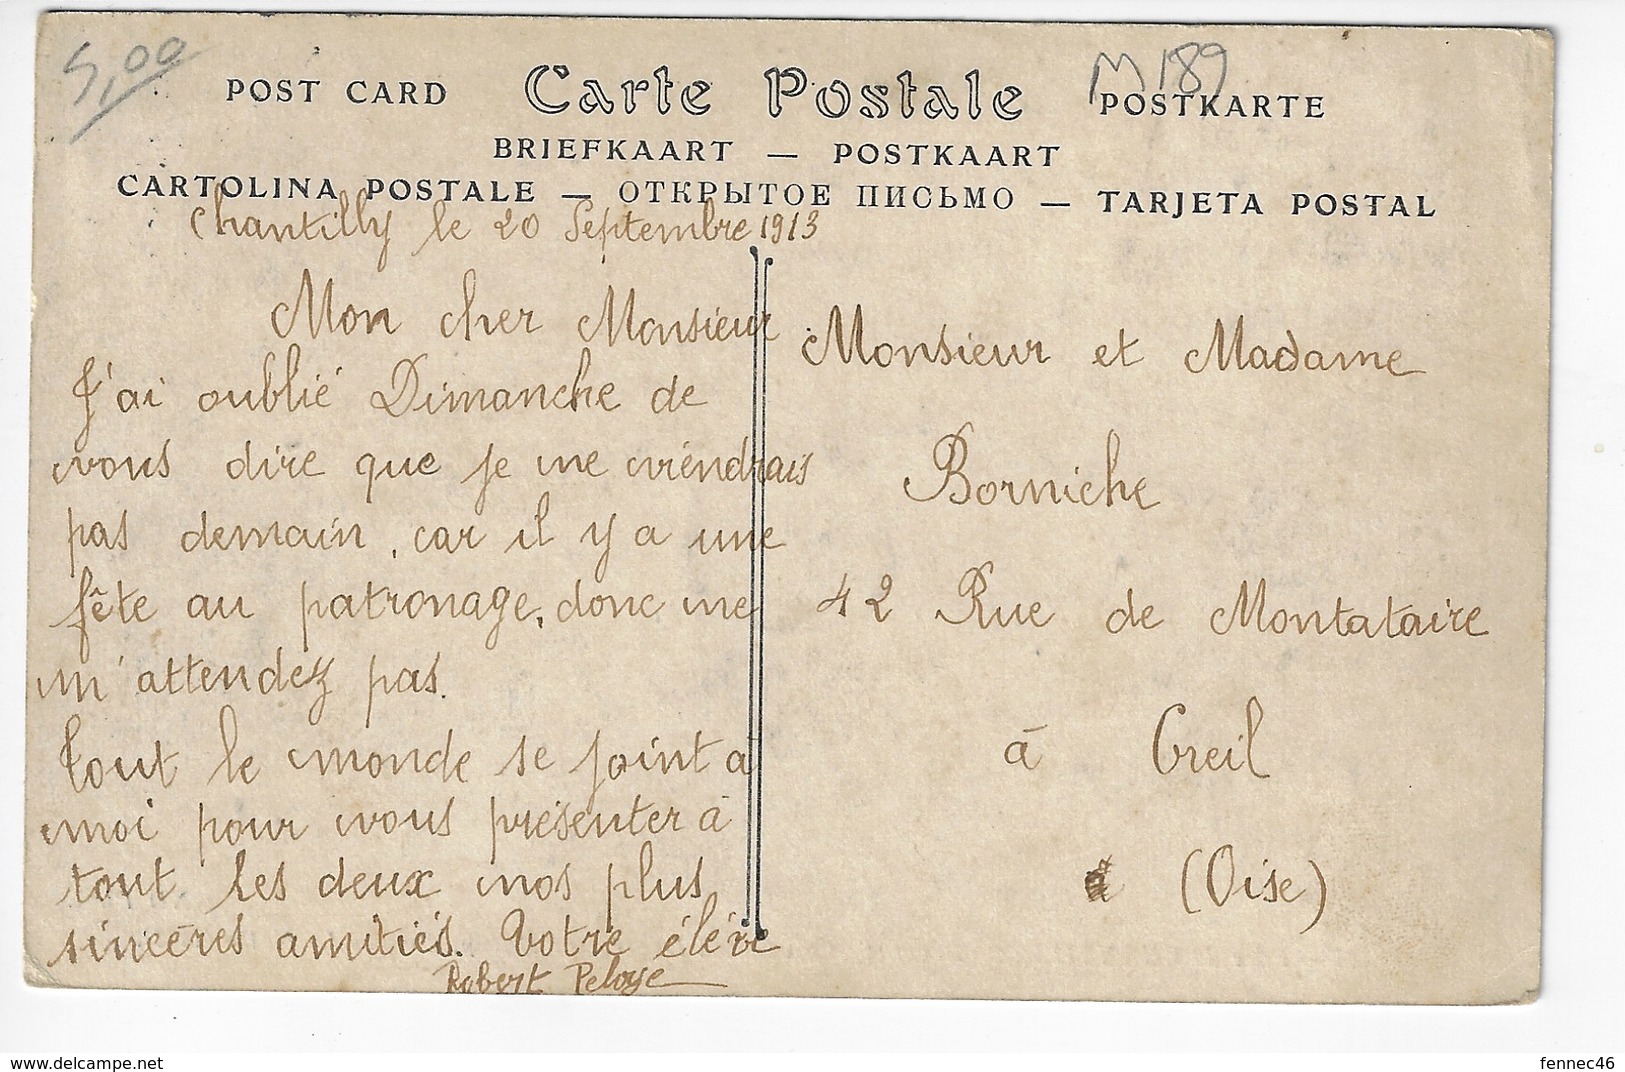 5,00
M 189
POST CARD Carte Postale POSTKARTE
BRIEFKAART — POSTKAART
CARTOLINA POSTALE — ОТКРЫТОЕ ПИСЬМО — TARJETA POSTAL
Chantilly le 20 Septembre 1913
Mon cher Monsieur
J'ai oublié Dimanche de
vous dire que je ne viendrais
pas demain, car il y a une
fête au patronage, donc ne
m'attendez pas.
Tout le monde se joint à
moi pour vous présenter à
tout les deux nos plus
sincères amitiés. Votre élève
Robert Peloye
Monsieur et Madame
Borniche
42 Rue de Montataire
à Creil
(Oise)
delcampe.net
fennec46